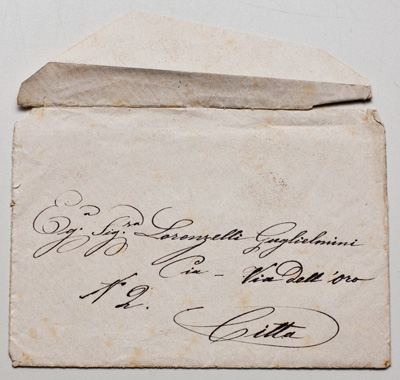 Eg.a Sig.ra Lorenzelli Guglielmini
Pia - Via dell'oro
N 2.
Città